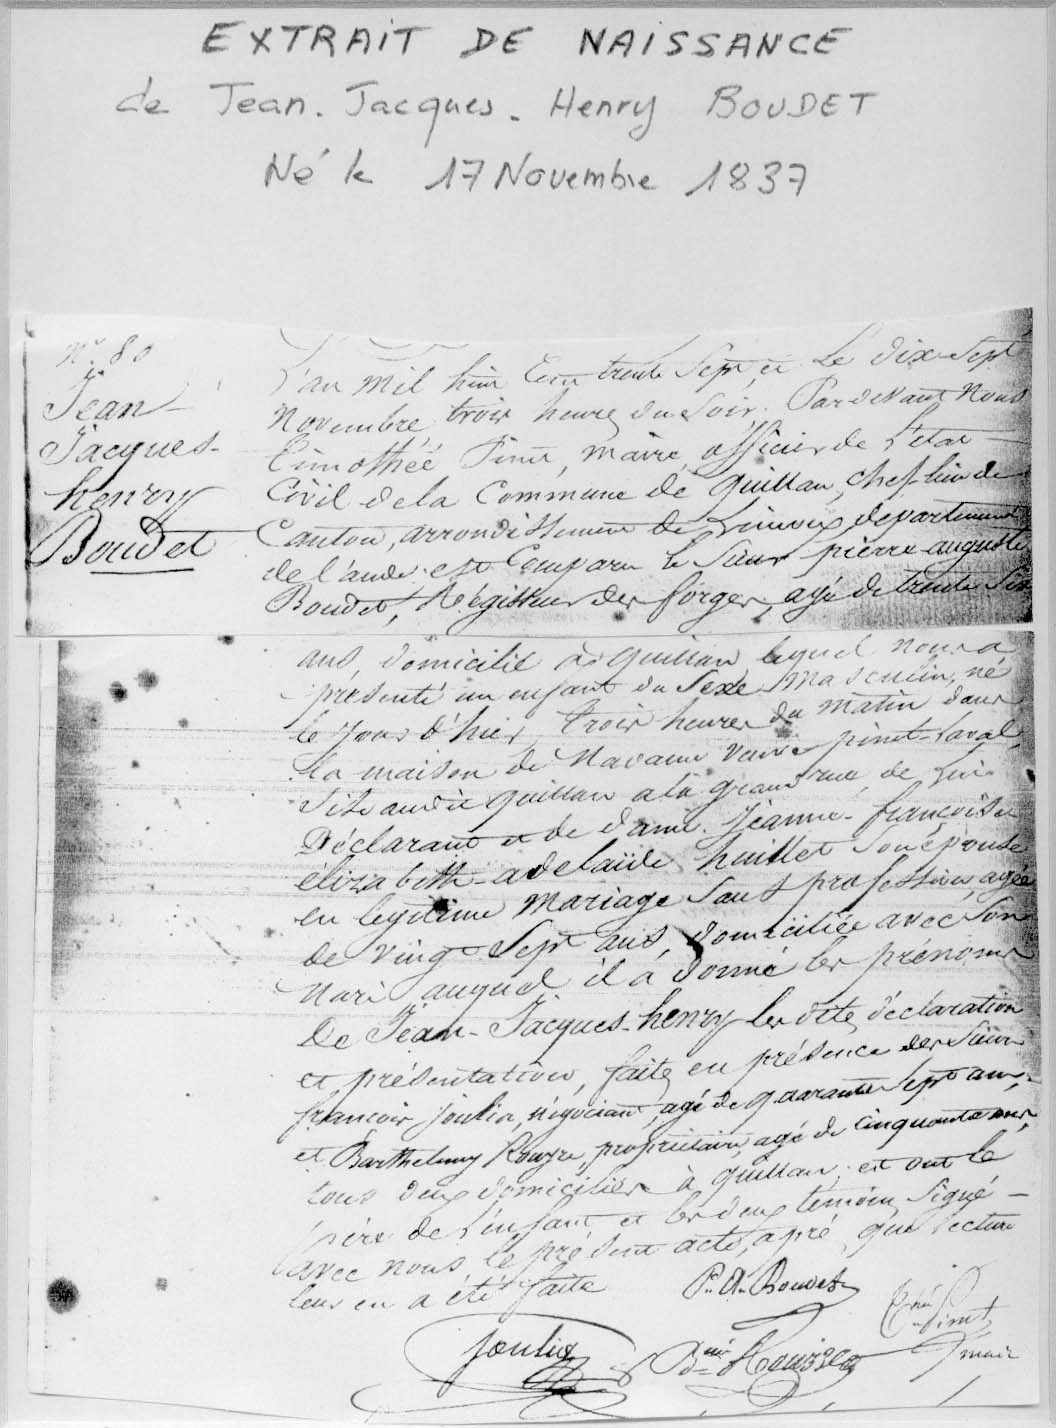 EXTRAIT DE NAISSANCE
de Jean. Jacques. Henry BOUDET
Né le 17 Novembre 1837
N° 80
Jean
Jacques-
henry
Boudet
L'an mil huit cent trente Sept, et le dix Sept
Novembre trois heures du Soir. Pardevant Nous
Timothée Pinet, maire, officier de L'état
Civil de la Commune de Quillan, chef lieu de
Canton, arrondissement de Limoux, departement
de l'aude. est Comparu le Sieur pierre-auguste
Boudet, Régisseur des forges, agé de trente Six
ans, domicilié à Quillan lequel nous a
présenté un enfant du Sexe Masculin, né
le jour d'hier, trois heures du matin dans
la maison de Madame Veuve pinet-Laval,
Sise audit quillan a la grand rue, de Lui
Déclarant et de dame. Jeanne-françoise
élizabeth-adelaïde huillet Son épouse
en legitime mariage Sans profession, agée
de vingt Sept ans, domiciliée avec Son
Mari auquel il a donné les prénoms
de Jean-Jacques-henry les dites déclaration
et présentation, faites en présence des Sieurs
françois Joulia, négociant, agé de quarante Sept ans,
et Barthelemy Rouzre, propriétaire, agé de cinquante ans,
tous deux domiciliés à Quillan; et ont le
père de L'enfant et les deux témoins Signé
avec nous le présent acte, apré que lecture
leur en a été faite
P. A. Boudet
Thée Pinet
Joulia
Bmi
maire